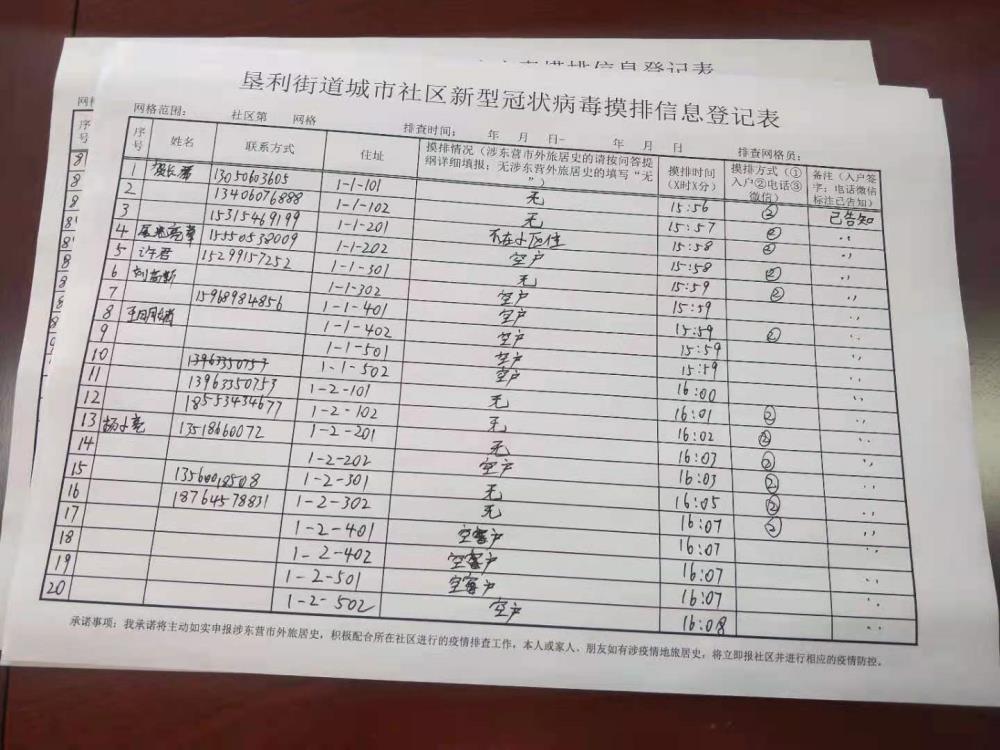 垦利街道城市社区新型冠状病毒摸排信息登记表
网格范围： 社区第 网格 排查时间： 年 月 日- 年 月 日 排查网格员：
序号 姓名 联系方式 住址 摸排情况（涉东营市外旅居史的请按问答提纲详细填报；无涉东营外旅居史的填写“无”） 摸排时间（X时X分） 摸排方式（①入户②电话③微信） 备注（入户签字；电话微信标注已告知）
1 13050603605 1-1-101 无 15:56 ② 已告知
2 13406076888 1-1-102 无 15:57 ② 〃
3 15315469199 1-1-201 不在小区住 15:58 ② 〃
4 15550538009 1-1-202 空户 15:58 〃
5 许君 15299157252 1-1-301 无 15:59 ② 〃
6 1-1-302 空户 15:59 〃
7 15968984856 1-1-401 空户 15:59 ② 〃
8 1-1-402 空户 15:59 〃
9 1-1-501 空户 15:59 〃
10 1-1-502 空户 16:00 〃
11 13963350753 1-2-101 无 16:01 ② 〃
12 18553434677 1-2-102 无 16:02 ② 〃
13 杨小亮 13518660072 1-2-201 无 16:03 ② 〃
14 1-2-202 空户 16:03 ② 〃
15 1-2-301 无 16:05 ② 〃
16 18764578831 1-2-302 无 16:07 ② 〃
17 1-2-401 空户 16:07 〃
18 1-2-402 空户 16:07 〃
19 1-2-501 空户 16:07 〃
20 1-2-502 空户 16:08 〃
承诺事项：我承诺将主动如实申报涉东营市外旅居史，积极配合所在社区进行的疫情排查工作，本人或家人、朋友如有涉疫情地旅居史，将立即报社区并进行相应的疫情防控。